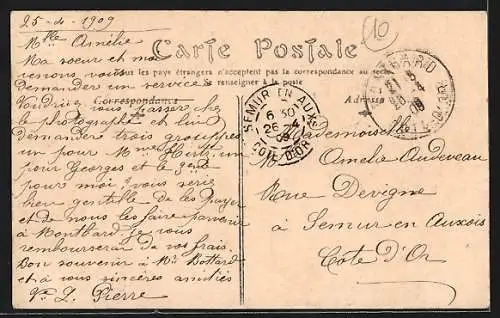 25-4-1909
10
Mlle Amélie
Carte Postale
Ma soeur et moi
Tous les pays étrangers n'acceptent pas la correspondance au recto
venons vous
se renseigner à la poste
demander un service
Voudriez vous passer chez
Correspondance
Adresse
le photographe et lui
demander trois groupes
un pour Mme
pour Georges et le
pour moi vous serez
bien gentille de les payer
et de nous les faire parvenir
à Montbard. Je vous
rembourserai de vos frais.
Bon souvenir à Mr Bottard
et à vous sincères amitiés
L. Pierre
SEMUR EN AUXOIS
6 30
26-4
09
COTE D'OR
MONTBARD
COTE D'OR
Mademoiselle
Amélie Audeveau
Rue Devigne
à Semur en Auxois
Côte d'Or